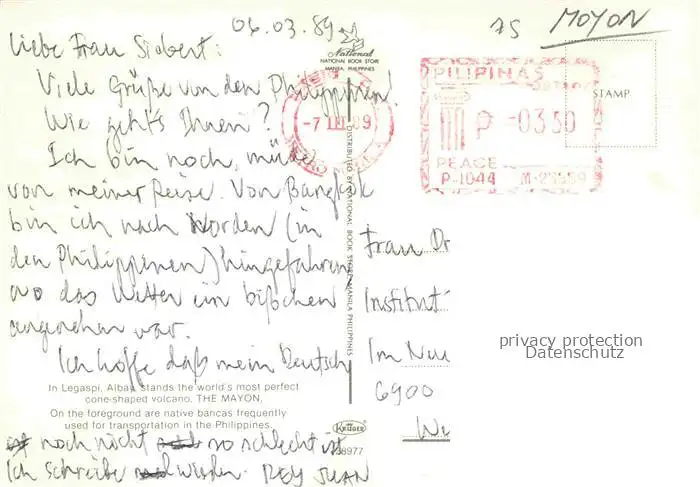 06.03.89
75
MOYON
Liebe Frau Siebert:
Viele Grüße von den Philippinen!
Wie geht's Ihnen?
Ich bin noch müde
von meiner Reise. Von Bangkok
bin ich nach Norden (in
den Philippenen) hingefahren,
wo das Wetter ein bißchen
angenehm war.
Ich hoffe daß mein Deutsch
noch nicht so schlecht ist
Ich schreibe wieder. REY JUAN
National
NATIONAL BOOK STORE
MANILA, PHILIPPINES
DISTRIBUTED BY NATIONAL BOOK STORE MANILA PHILIPPINES
-7 III 89
PILIPINAS
P -0350
PEACE
P-1044
STAMP
Frau Dr
Institut
Im Neu
6900
privacy protection
Datenschutz
In Legaspi, Albay stands the world's most perfect
cone-shaped volcano. THE MAYON.
On the foreground are native bancas frequently
used for transportation in the Philippines.
KRÜGER